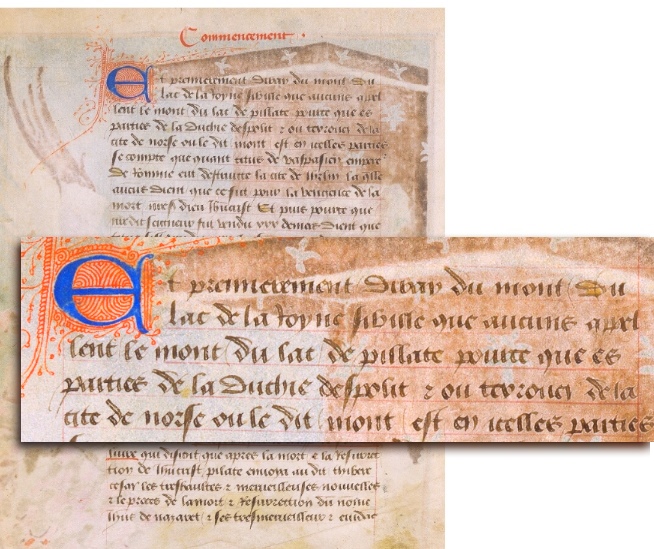 Commencement .
Et premierement diray du mont du
lac de la royne sibille que aucuns apel
lent le mont du lac de pillate pource que es
parties de la duchie despolit z ou terrouer de la
cite de norse ou le dit mont est en icelles parties
se compte que quant titus de vaspasien empere
de Romme eut destruitte la cite de
aucuns dient que ce fut pour la vengence de la
mort dieu Et plus pource que
fut vendu xxx deniers dient que
Et premierement diray du mont du
lac de la royne sibille que aucuns apel
lent le mont du lac de pillate pource que es
parties de la duchie despolit z ou terrouer de la
cite de norse ou le dit mont est en icelles parties
qui disoit que apres la mort z la resurrec
tion de pilate envoya au dit
cesar les z merveilleuses nouvelles
z le proces de la mort z Resurrection du
de nazaret z ses tresmerveilleux z